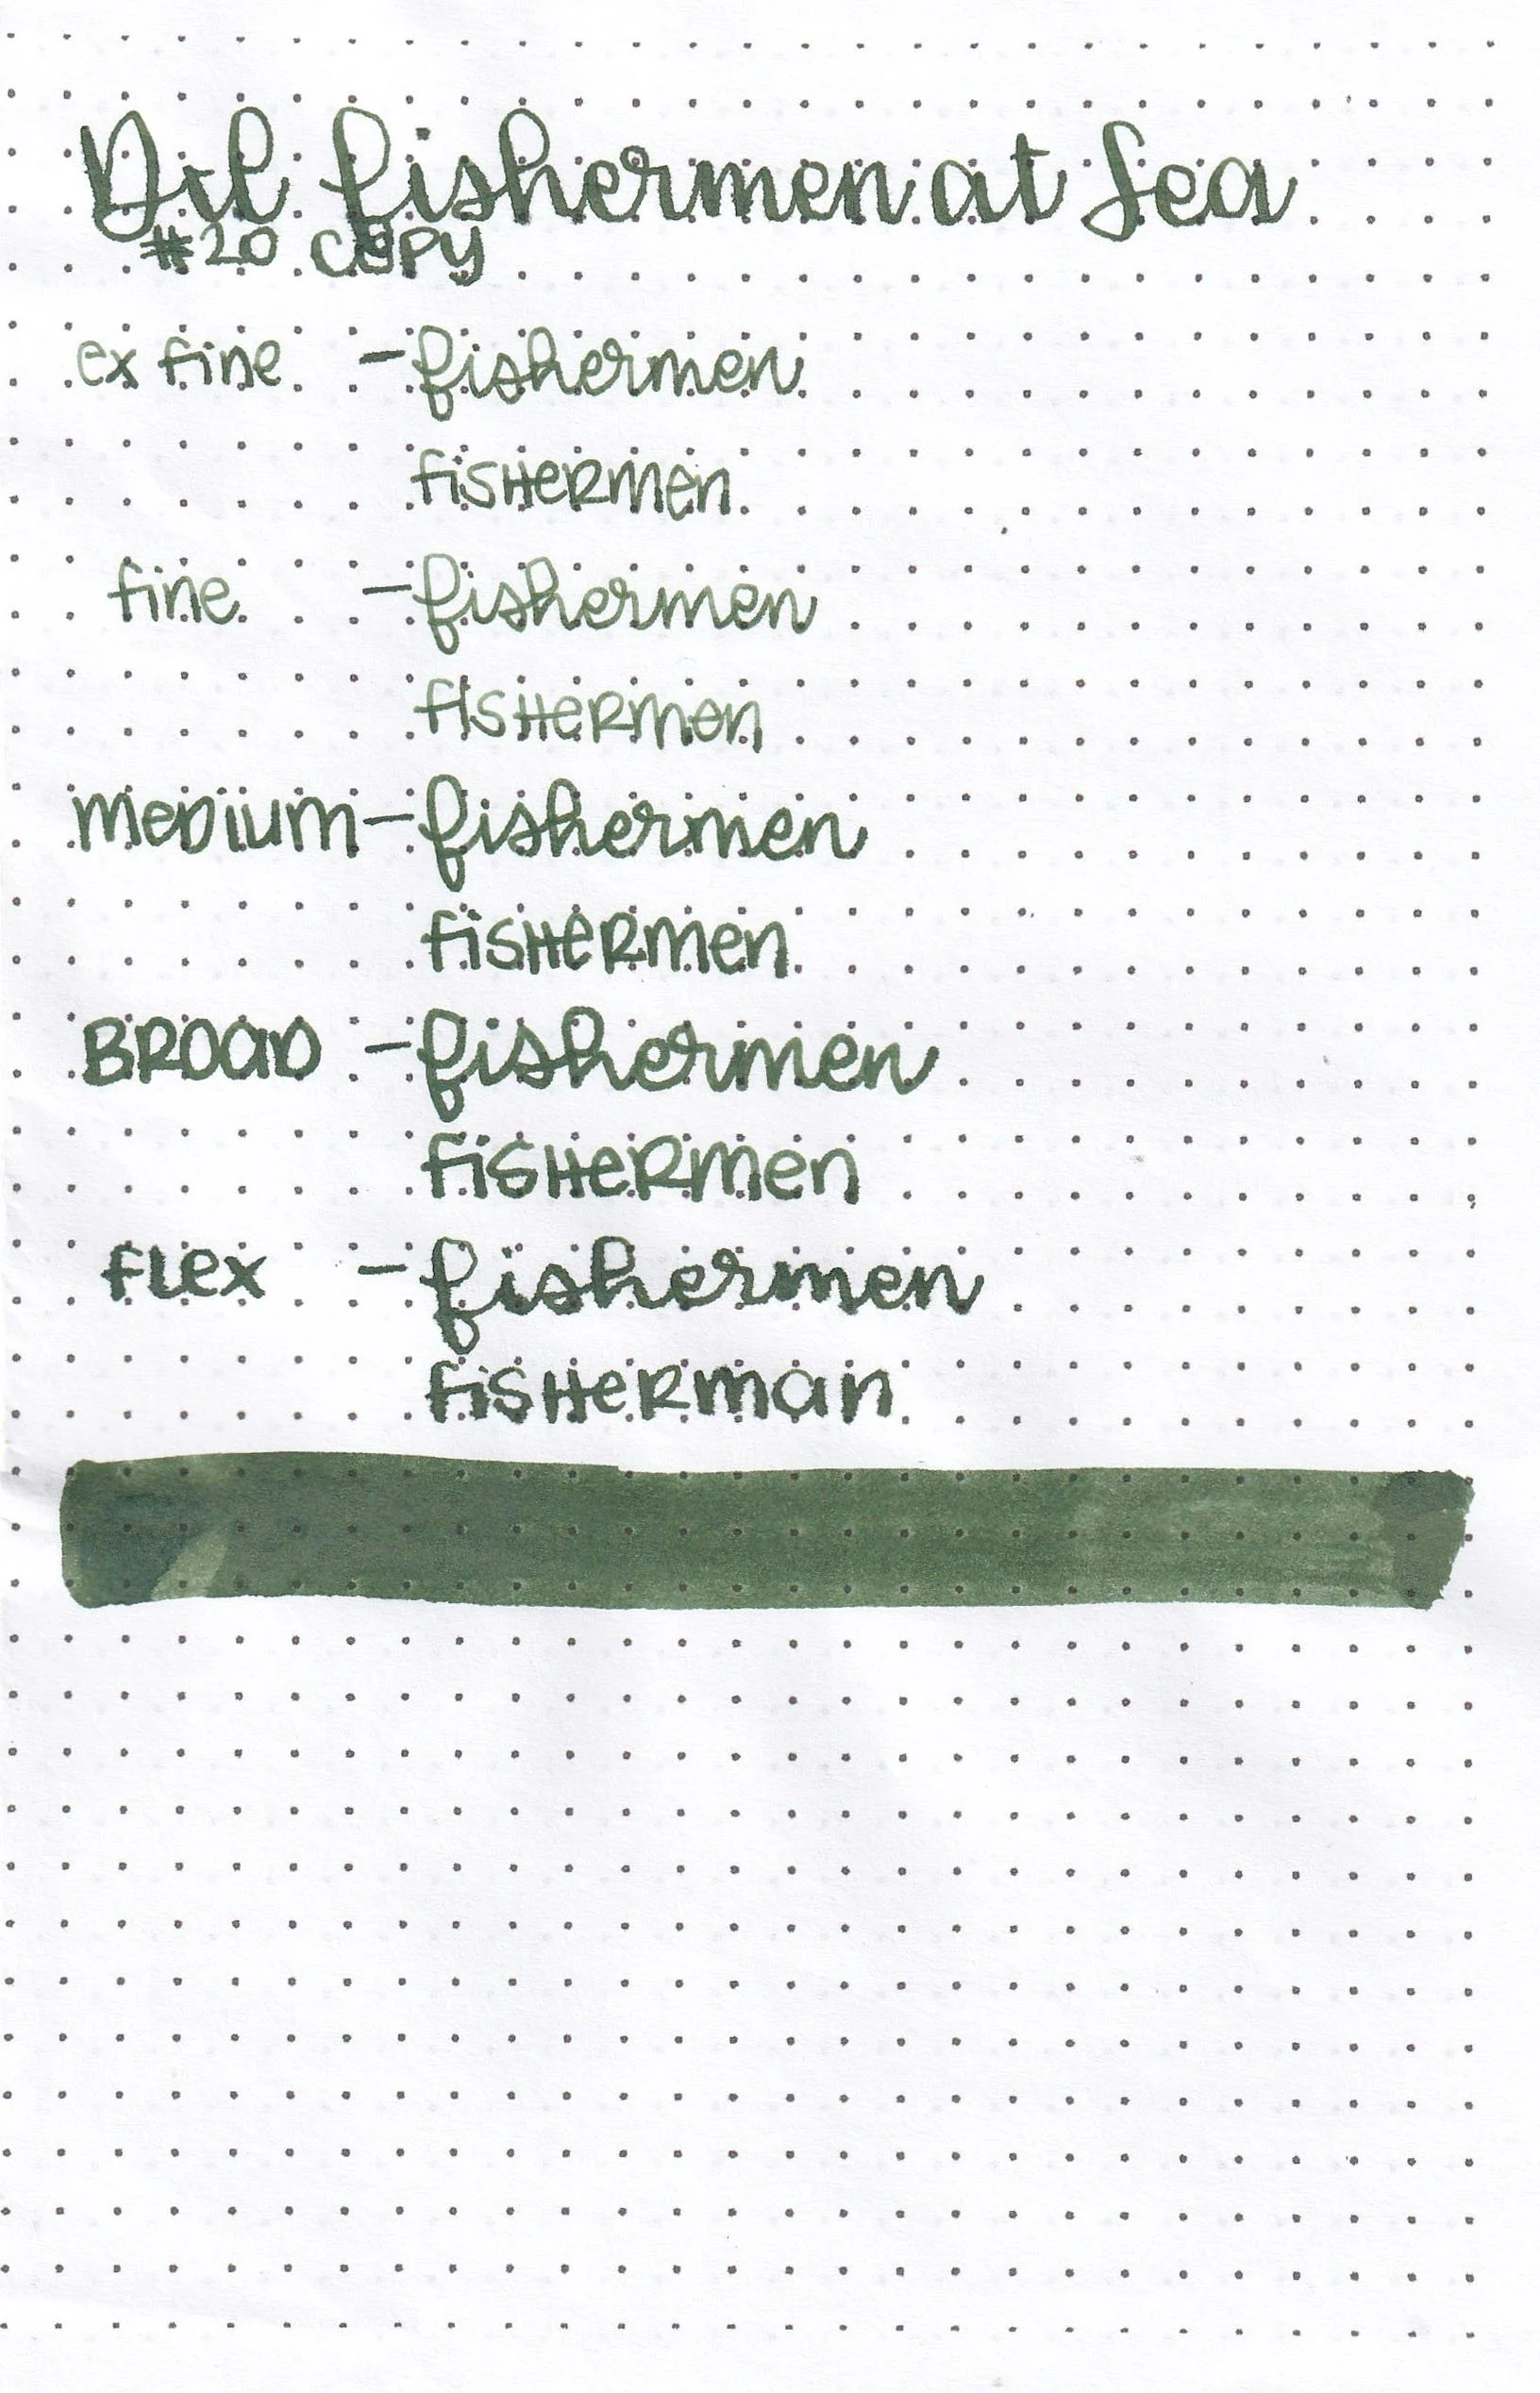 Dil fishermen at Sea
#20 COPY
ex fine - fishermen
fisHeRmen
fine - fishermen
fisHeRmen
meDium - fishermen
fisHeRmen
BROaD - fishermen
fisHeRmen
fLex - fishermen
fisHeRman